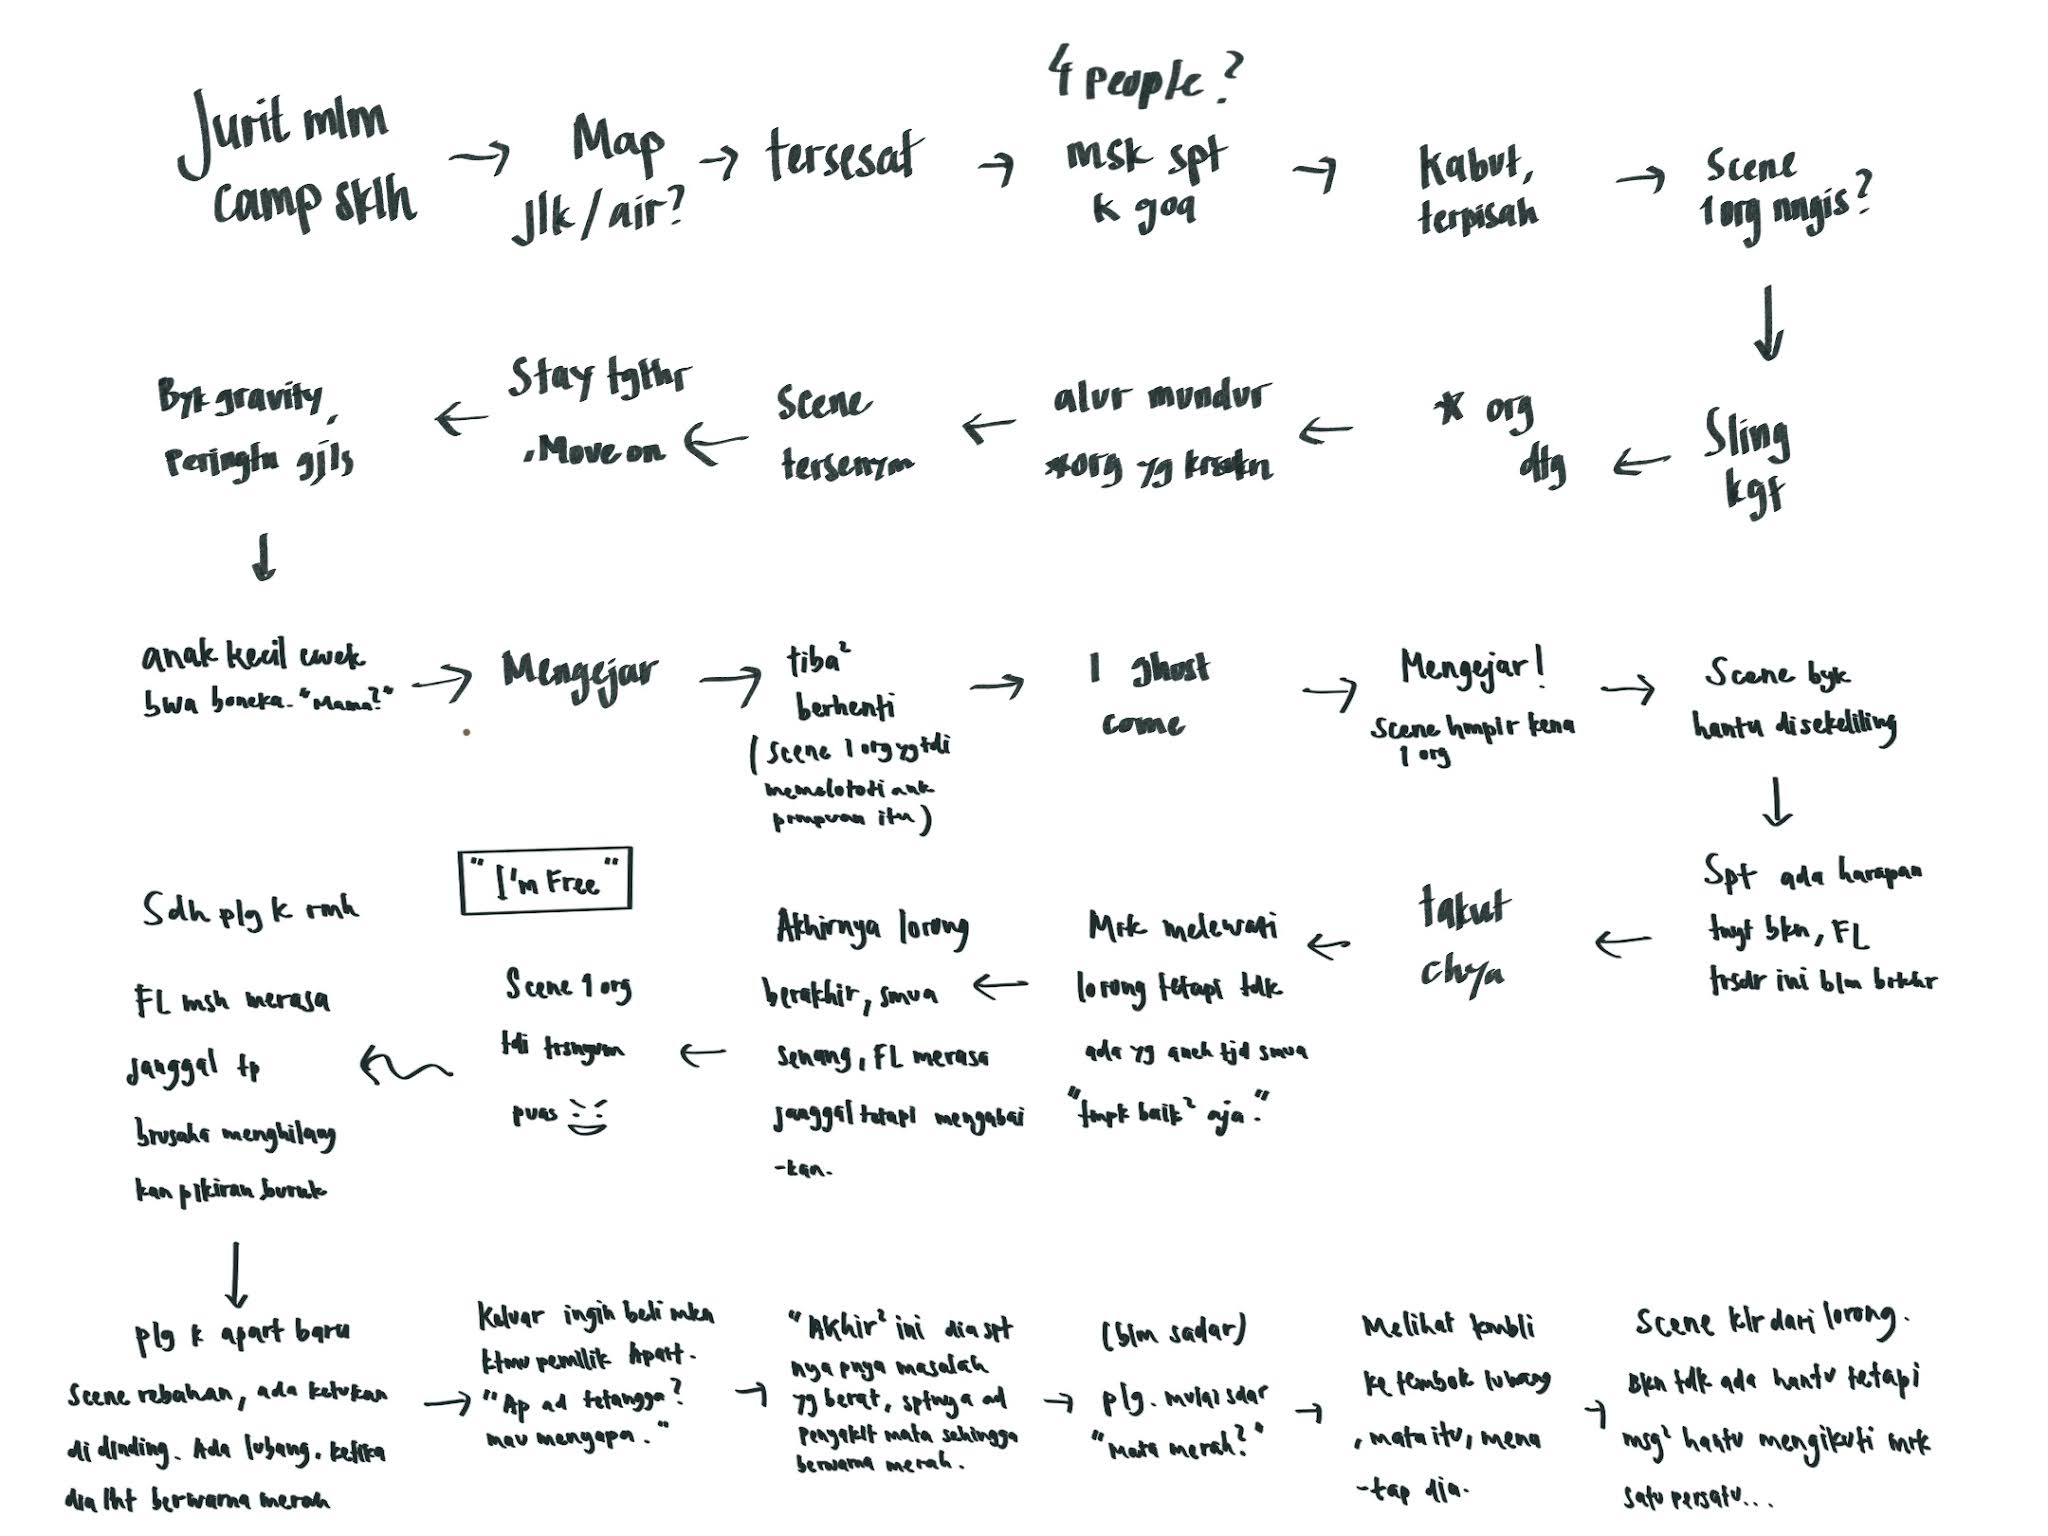 Jurit mlm
camp sklh
Map
jlk/air?
tersesat
4 people?
msk spt
k goa
Kabut,
terpisah
Scene
1 org nngis?
Sling
kgt
* org
dtg
alur mundur
*org yg
Scene
tersenym
Stay tgthr
, Move on
Byk gravity,
Peringtn gjls
anak kecil cwek
bwa boneka. "Mama?"
Mengejar
tiba²
berhenti
(scene 1 org yg tdi
memelototi ank
prmpuan itu)
1 ghost
come
Mengejar!
Scene hmpir kena
1 org
Scene byk
hantu disekeliling
Spt ada harapan
trnyt bkn, FL
trsdr ini blm brkhr
takut
chya
Mrk melewati
lorong tetapi tdk
ada yg aneh tjd smua
"tmpk baik² aja."
Akhirnya lorong
berakhir, smua
senang, FL merasa
janggal tetapi mengabai
-kan.
"I'm Free"
Scene 1 org
tdi trsnyum
puas
Sdh plg k rmh
FL msh merasa
janggal tp
brusaha menghilang
kan pikiran buruk
plg k apart baru
Scene rebahan, ada ketukan
di dinding. Ada lubang. ketika
dia lht berwarna merah
Keluar ingin beli mkn
ktmu pemilik Apart.
"Ap ad tetangga?
mau menyapa."
"Akhir² ini dia spt
nya pnya masalah
yg berat, sptnya ad
Penyakit mata sehingga
berwarna merah.
(blm sadar)
plg. mulai sdar
"Mata merah?"
Melihat kmbli
ke tembok lubang
, mata itu, mena
-tap dia.
Scene klr dari lorong.
Bkn tdk ada hantu tetapi
msg² hantu mengikuti mrk
satu persatu...